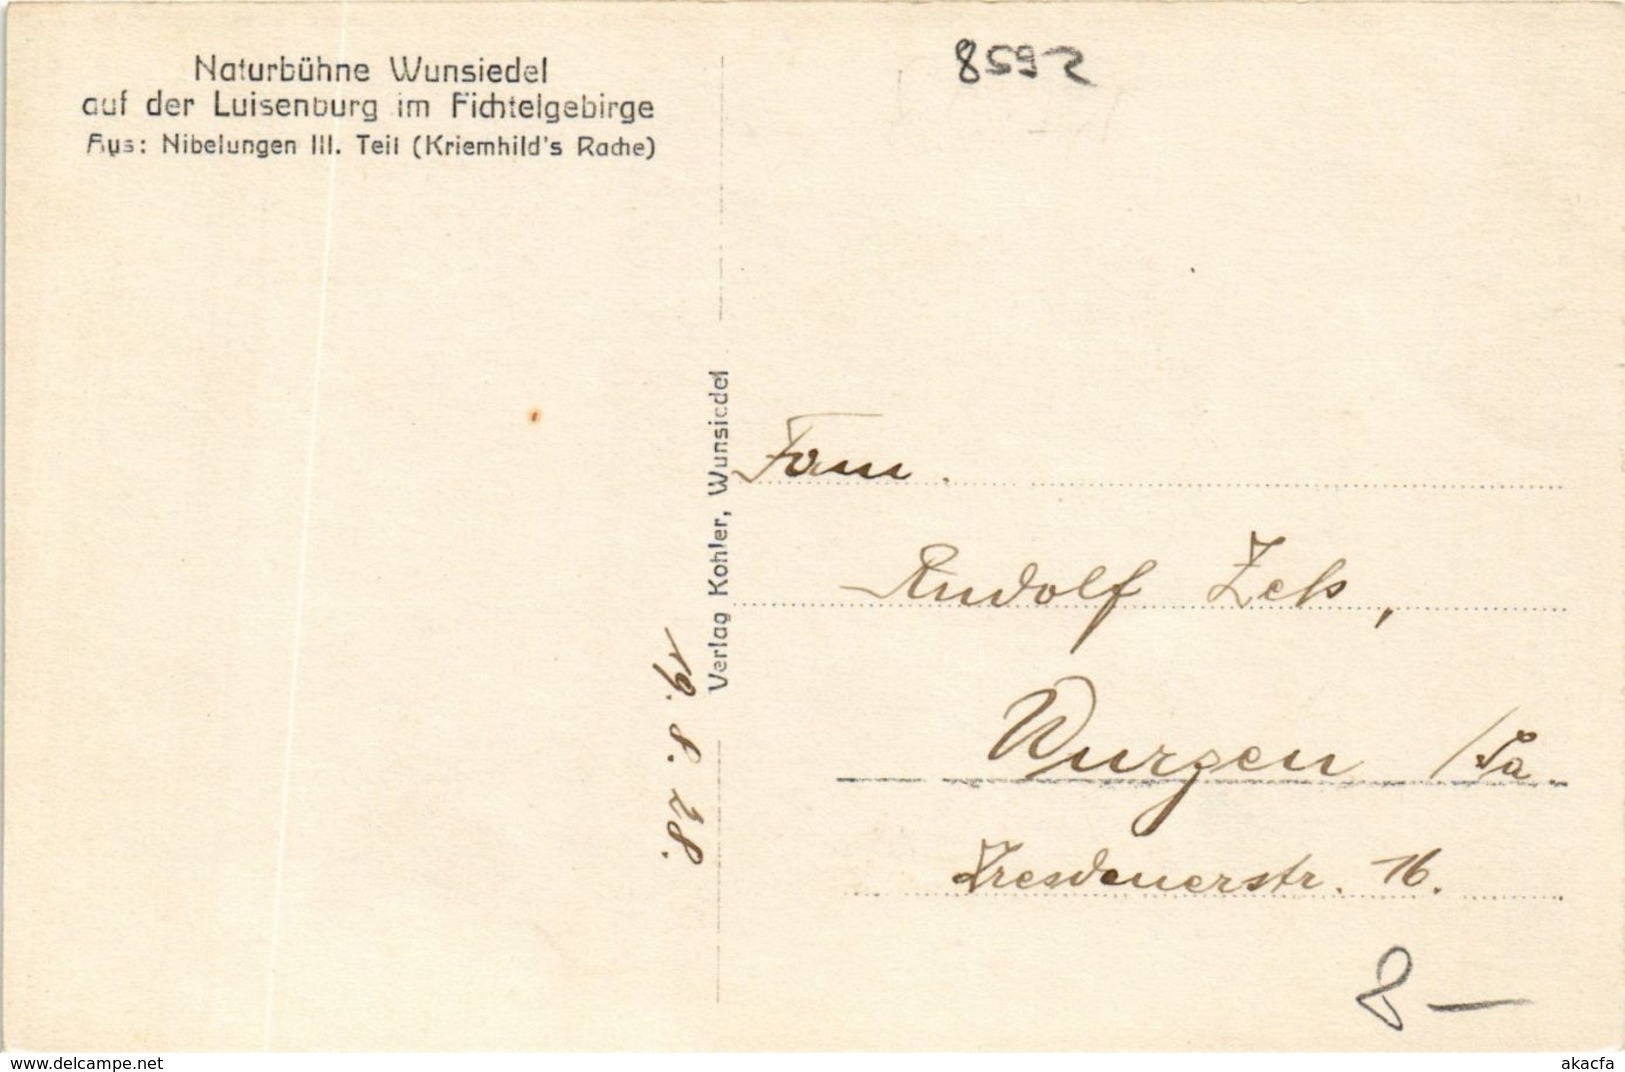 Naturbühne Wunsiedel
auf der Luisenburg im Fichtelgebirge
Aus: Nibelungen III. Teil (Kriemhild's Rache)
8592
Verlag Kohler, Wunsiedel
19. 8. 28.
Fam.
Rudolf
Wurzen /Sa.
Dresdenerstr. 16.
8 —
www.delcampe.net
akacfa